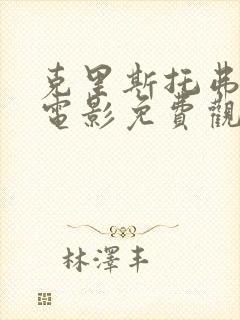 克里斯托弗
電影免費觀
林澤丰